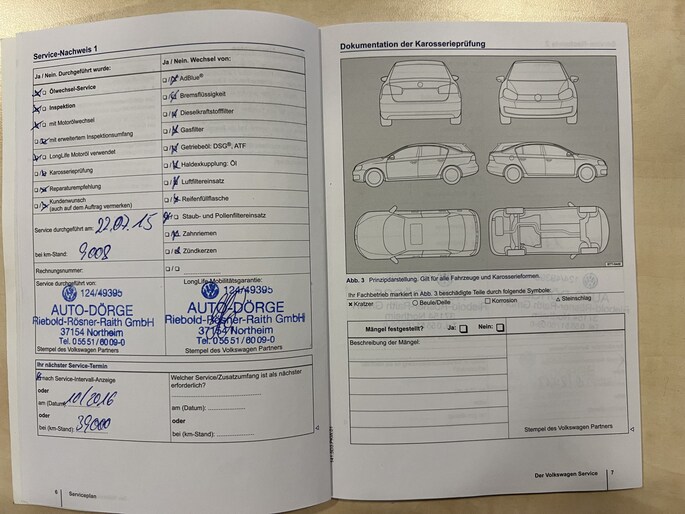 Service-Nachweis 1
Ja / Nein. Durchgeführt wurde:
Ölwechsel-Service
Inspektion
mit Motorölwechsel
mit erweitertem Inspektionsumfang
LongLife Motoröl verwendet
Karosserieprüfung
Reparaturempfehlung
Kundenwunsch
(auch auf dem Auftrag vermerken)
Service durchgeführt am: 22.07.15
bei km-Stand: 9008
Rechnungsnummer:
Service durchgeführt von:
124/49395
AUTO-DÖRGE
Riebold-Rösner-Raith GmbH
37154 Northeim
Tel. 05551/6009-0
Stempel des Volkswagen Partners
Ja / Nein. Wechsel von:
AdBlue®
Bremsflüssigkeit
Dieselkraftstofffilter
Gasfilter
Getriebeöl: DSG®, ATF
Haldexkupplung: Öl
Luftfiltereinsatz
Reifenfüllflasche
Staub- und Pollenfiltereinsatz
Zahnriemen
Zündkerzen
LongLife Mobilitätsgarantie:
124/49395
AUTO-DÖRGE
Riebold-Rösner-Raith GmbH
37154 Northeim
Tel. 05551/6009-0
Stempel des Volkswagen Partners
Ihr nächster Service-Termin
nach Service-Intervall-Anzeige
oder
am (Datum): 10/2016
oder
bei (km-Stand): 39000
Welcher Service/Zusatzumfang ist als nächster
erforderlich?
am (Datum):
oder
bei (km-Stand):
6 Serviceplan
Dokumentation der Karosserieprüfung
Abb. 3 Prinzipdarstellung. Gilt für alle Fahrzeuge und Karosserieformen.
Ihr Fachbetrieb markiert in Abb. 3 beschädigte Teile durch folgende Symbole:
Kratzer Beule/Delle Korrosion Steinschlag
Mängel festgestellt? Ja: Nein:
Beschreibung der Mängel:
Stempel des Volkswagen Partners
Der Volkswagen Service 7